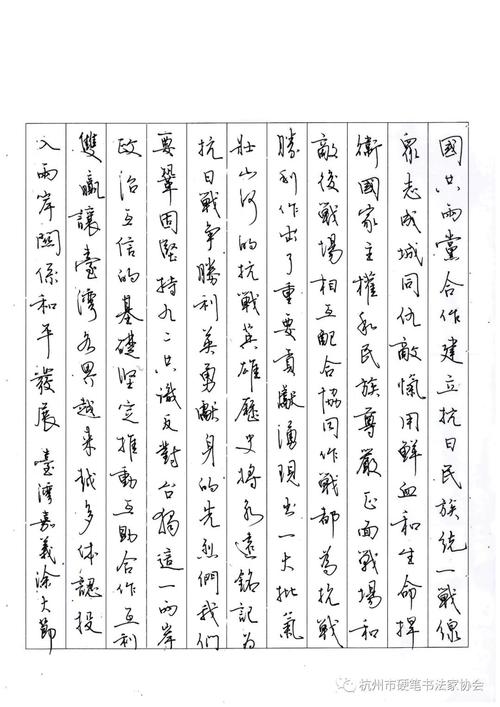 國共兩黨合作建立抗日民族統一戰線
眾志成城同仇敵愾用鮮血和生命捍
衛國家主權和民族尊嚴正面戰場和
敵後戰場相互配合協同作戰都為抗戰
勝利作出了重要貢獻湧現出一大批氣
壯山河的抗戰英雄歷史將永遠銘記為
抗日戰爭勝利英勇獻身的先烈們我們
要鞏固堅持九二共識反對台獨這一兩岸
政治互信的基礎堅定推動互助合作互利
雙贏讓臺灣各界越來越多体認投
入兩岸關係和平發展 臺灣嘉義涂大節
杭州市硬笔书法家协会